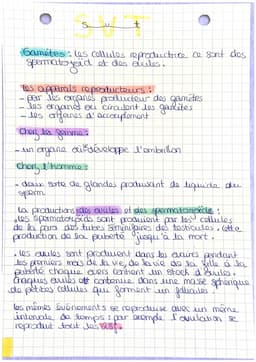 SVT
Gamètes : les cellules reproductrice ce sont des
spermatozoïd et des ovules.
les appareils reproducteurs :
- par les organes producteur des gamètes
- les organes où circulent les gamètes
- les organes d'accouplement
Chez la femme :
- un organe où développe l'embrillon
Chez l'Homme :
- deux sorte de glandes produisant de liquide du
sperm
La productions des ovules et des spermatozoïde :
• les spermatozoïds sont produient par les cellules
de la paroi des tubes séminifères des testicules. cette
production de la puberté jusqu'à la mort.
• les ovules sont produient dans les ovaires pendant
les premiers mois de la vie, de la vie de la fille à sa
puberté chaque overs contient un stock d'ovules.
chaques ovules est contenue dans une masse sphérique
de petites cellules qui forment un follicules.
les mêmes événements se reproduise avec un même
intervale de temps : par exemple l'ovulation se
reproduit tout les